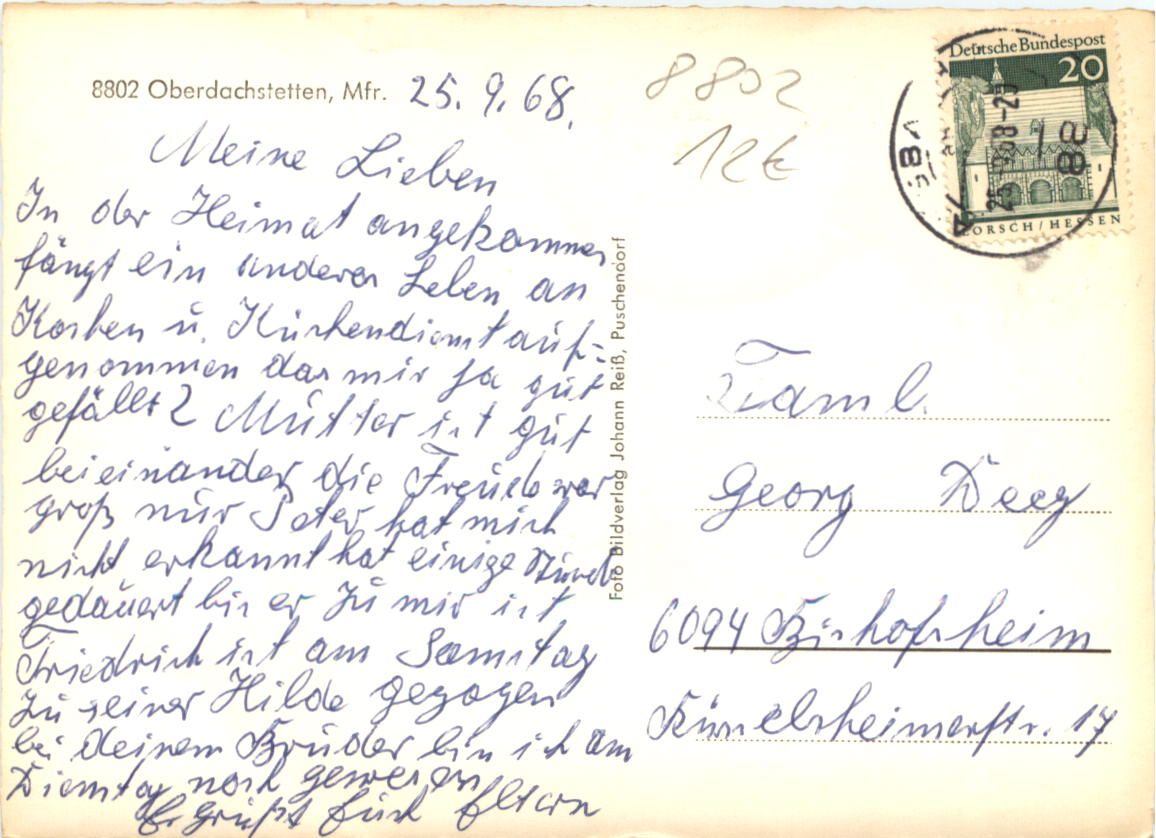 8802 Oberdachstetten, Mfr. 25.9.68.
Meine Lieben
In der Heimat angekommen
fängt ein anderes Leben an
Kochen u. Küchendienst auf=
genommen das mir ja gut
gefällt? Mutter ist gut
beieinander die Freude war
groß nur Peter hat mich
nicht erkannt hat einige Stund
gedauert bis er zu mir ist
Friedrich ist am Samstag
zu seiner Hilde gezogen
bei deinem Bruder bin ich am
Dienstag noch gewesen
Es grüßt Euch Eltern
Foto Bildverlag Johann Reiß, Puschendorf
8802
12€
Deutsche Bundespost
20
LORSCH/HESSEN
Faml.
Georg Deeg
6094 Bischofsheim
Rüsselsheimerstr. 17